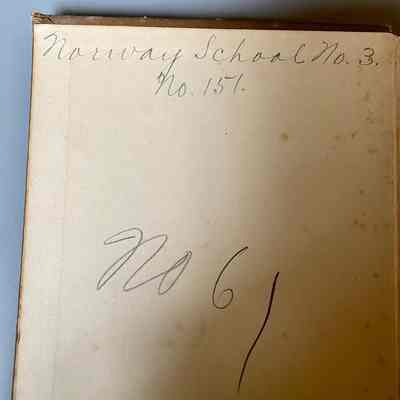 Norway School No. 3.
No. 151.
No 61